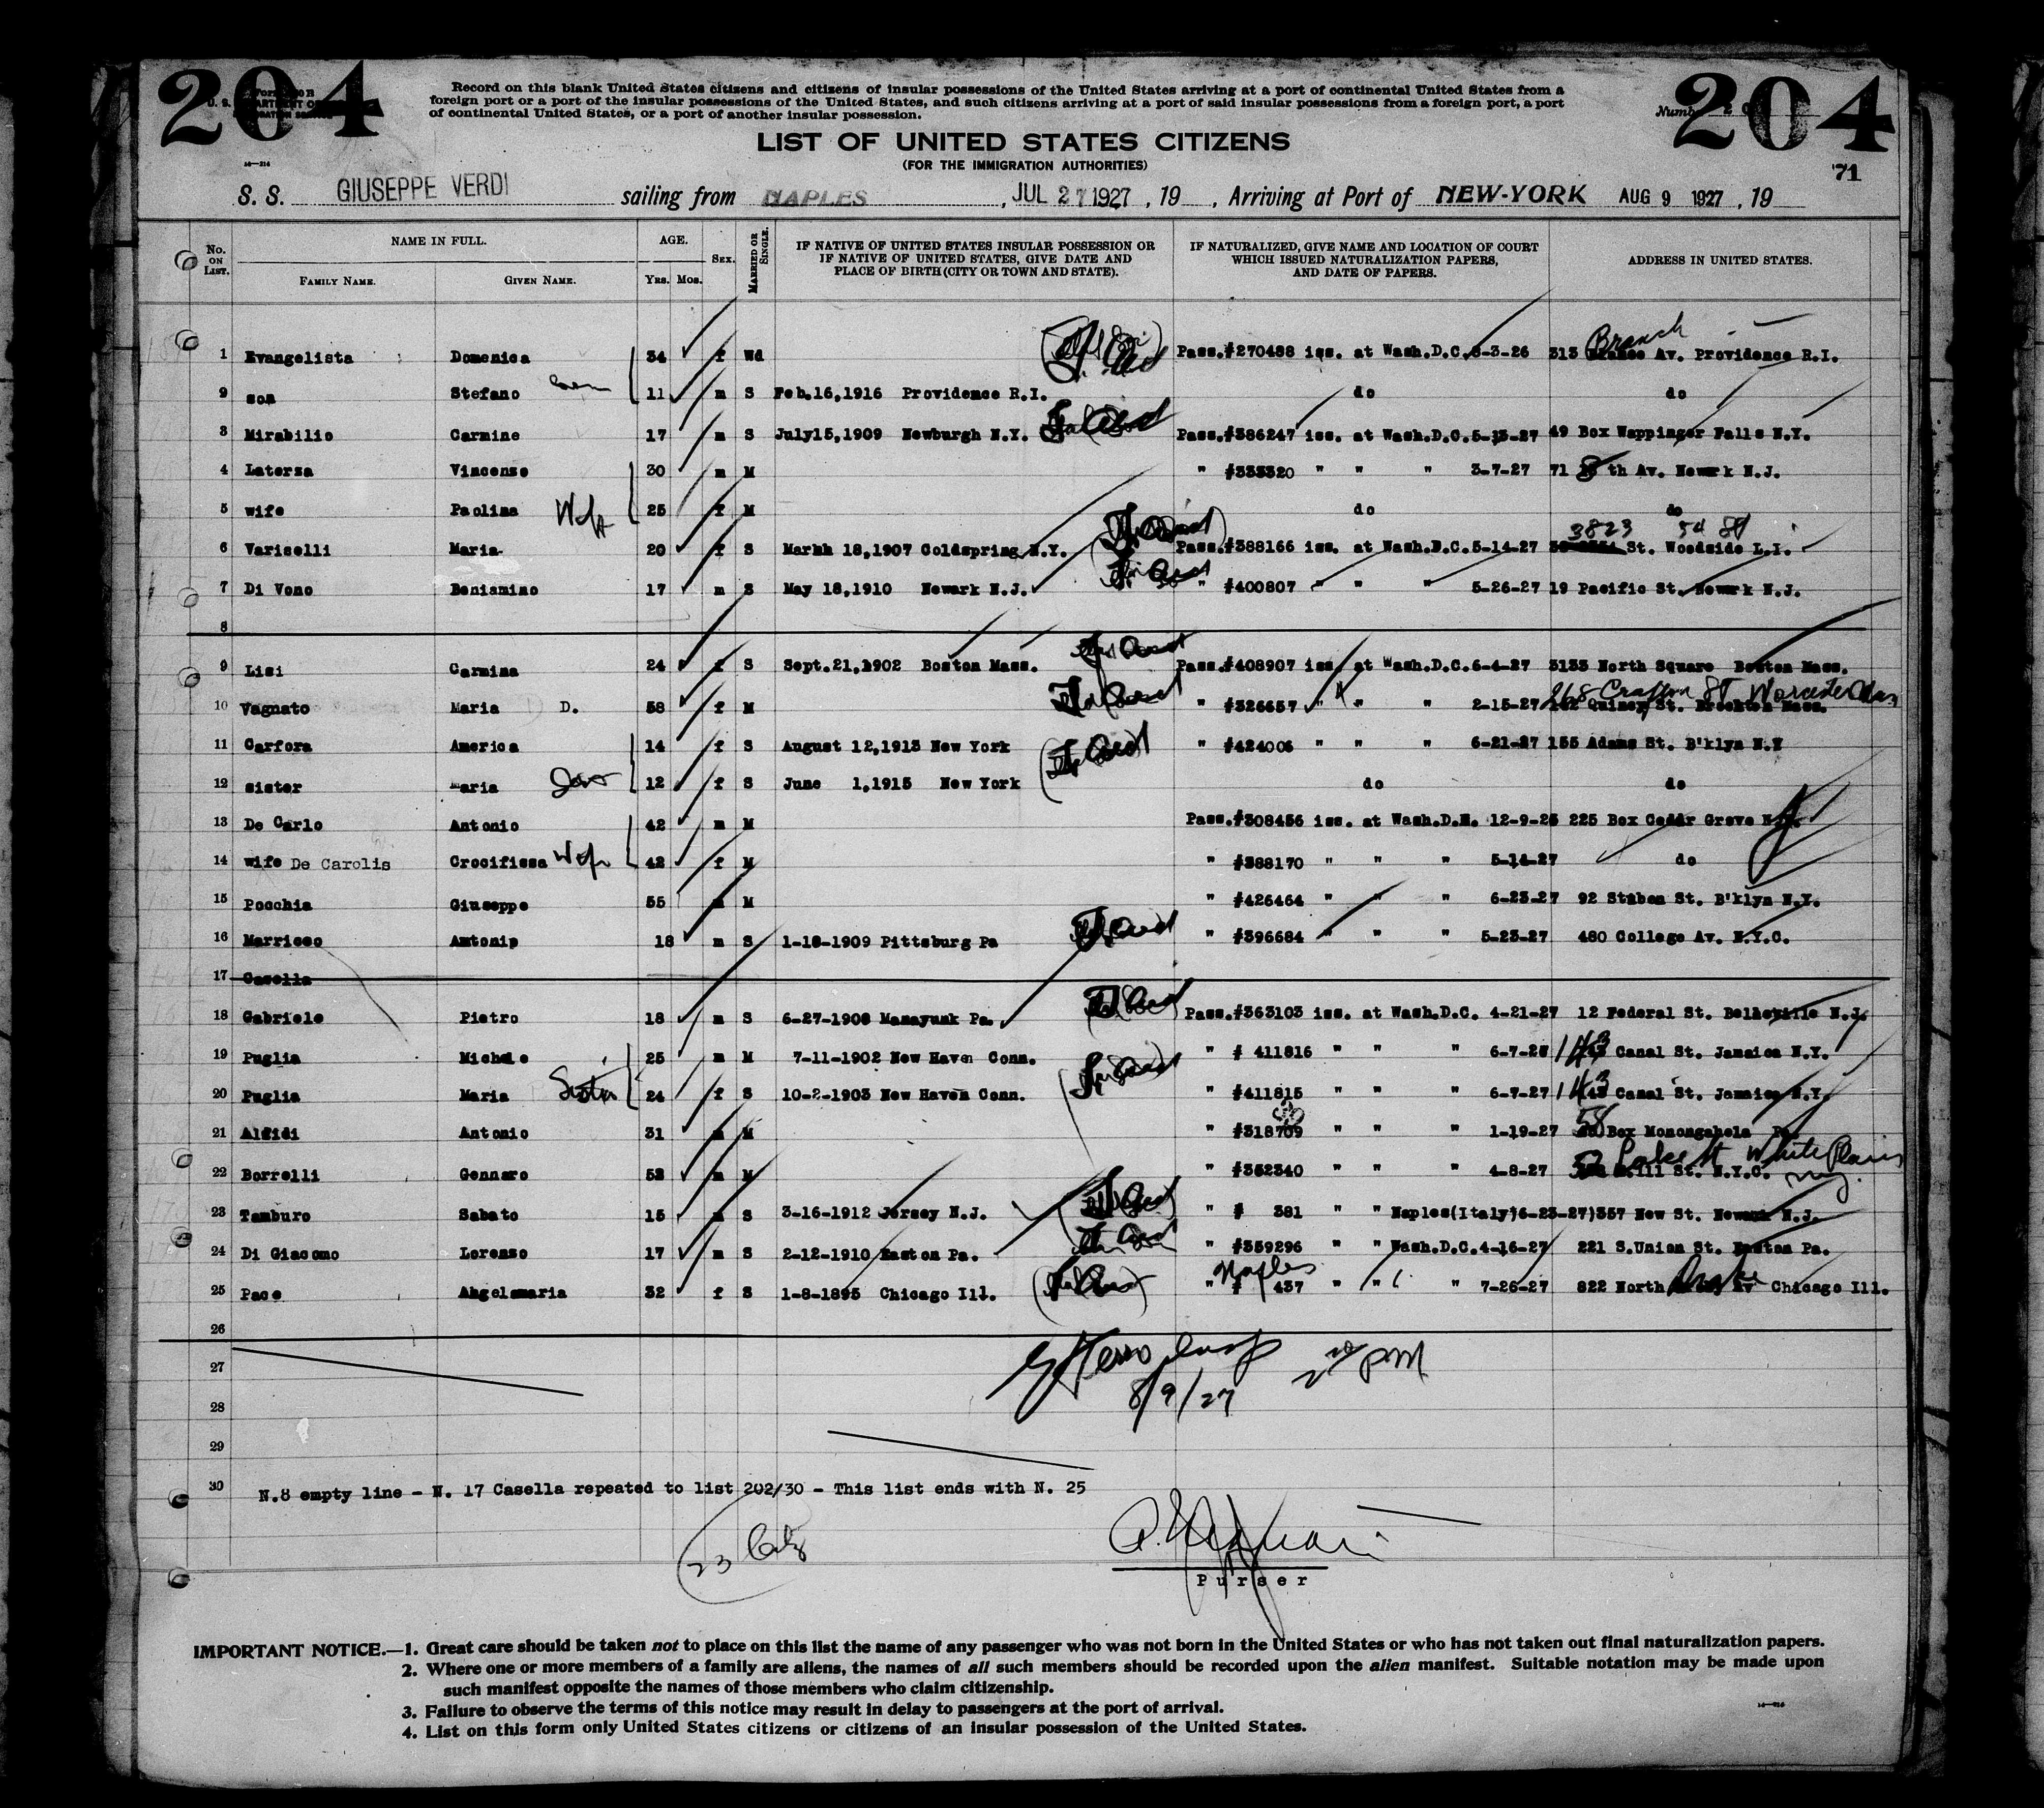 204
204
Record on this blank United States citizens and citizens of insular possessions of the United States arriving at a port of continental United States from a
foreign port or a port of the insular possessions of the United States, and such citizens arriving at a port of said insular possessions from a foreign port, a port
of continental United States, or a port of another insular possession.
LIST OF UNITED STATES CITIZENS
(FOR THE IMMIGRATION AUTHORITIES)
71
S. S. GIUSEPPE VERDI sailing from NAPLES, JUL 27 1927, 19 , Arriving at Port of NEW-YORK AUG 9 1927, 19
No. ON LIST. NAME IN FULL. FAMILY NAME. GIVEN NAME. AGE. YRS. MOS. SEX. MARRIED OR SINGLE. IF NATIVE OF UNITED STATES INSULAR POSSESSION OR IF NATIVE OF UNITED STATES, GIVE DATE AND PLACE OF BIRTH (CITY OR TOWN AND STATE). IF NATURALIZED, GIVE NAME AND LOCATION OF COURT WHICH ISSUED NATURALIZATION PAPERS, AND DATE OF PAPERS. ADDRESS IN UNITED STATES.
1 Evangelista Domenica 34 f Wd Pass.#270488 iss. at Wash.D.C. 3-26 313 Branch Av. Providence R.I.
2 son Stefano 11 m S Feb.16,1916 Providence R.I. do do
3 Mirabilio Carmine 17 m S July15,1909 Newburgh N.Y. Pass.#386247 iss. at Wash.D.C.5-13-27 49 Box Wappinger Falls N.Y.
4 Laterza Vincenso 30 m M " #333320 " " " 3-7-27 71 8 th Av. Newark N.J.
5 wife Paolina Wife 25 f M do do
6 Variselli Maria 20 f S Marhh 18,1907 Coldspring N.Y. Pass.#388166 iss. at Wash.D.C.5-14-27 3823 54 St St. Woodside L.I.
7 Di Vono Beniamino 17 m S May 18,1910 Newark N.J. " #400807 " " " 5-26-27 19 Pacific St. Newark N.J.
8
9 Lisi Carmina 24 f S Sept.21,1902 Boston Mass. Pass.#408907 iss. at Wash.D.C.6-4-27 3133 North Square Boston Mass.
10 Vagnato Maria D. 58 f M " #326657 " " " 2-15-27 Quincy St. Brockton Mass. 268 Crafton St Worcester Mass
11 Carfora America 14 f S August 12,1913 New York " #424006 " " " 6-21-27 155 Adams St. B'klyn N.Y
12 sister Maria 12 f S June 1,1915 New York do do
13 De Carlo Antonio 42 m M Pass.#308456 iss. at Wash.D. 12-9-26 225 Box Cedar Grove N.J.
14 wife De Carolis Crocifissa Wife 42 f M " #388170 " " " 5-14-27 do
15 Pocchia Giuseppe 55 m M " #426464 " " " 6-23-27 92 Stuben St. B'klyn N.Y.
16 Marricco Antonip 18 m S 1-18-1909 Pittsburg Pa " #396684 " " " 5-23-27 480 College Av. N.Y.C.
17 Casella
18 Gabriele Pietro 18 m S 6-27-1908 Manayunk Pa. Pass.#363103 iss. at Wash.D.C. 4-21-27 12 Federal St. Belleville N.J.
19 Puglia Michele 25 m M 7-11-1902 New Haven Conn. " # 411816 " " " 6-7-27 143 Canal St. Jamaica N.Y.
20 Puglia Maria Sister 24 f S 10-2-1903 New Haven Conn. " #411815 " " " 6-7-27 143 Canal St. Jamaica N.Y.
21 Alfidi Antonio 31 m M " #318709 " " " 1-19-27 58 Box Monongahela Pa.
22 Borrelli Gennaro 52 m M " #352340 " " " 4-8-27 St. N.Y.C. Lake St White Plains N.Y.
23 Tamburo Sabato 15 m S 3-16-1912 Jersey N.J. " # 381 " " Naples(Italy)6-23-27)357 New St. Newark N.J.
24 Di Giacomo Lorenso 17 m S 2-12-1910 Easton Pa. " #359296 " " Wash.D.C.4-16-27 221 S.Union St. Easton Pa.
25 Pace Angelamaria 32 f S 1-8-1895 Chicago Ill. " Naples # 437 " " " 7-26-27 822 North Drake Av Chicago Ill.
26
27
8/9/27
28
29
30 N.8 empty line - N. 17 Casella repeated to list 202/30 - This list ends with N. 25
23
Purser
IMPORTANT NOTICE.—1. Great care should be taken not to place on this list the name of any passenger who was not born in the United States or who has not taken out final naturalization papers.
2. Where one or more members of a family are aliens, the names of all such members should be recorded upon the alien manifest. Suitable notation may be made upon
such manifest opposite the names of those members who claim citizenship.
3. Failure to observe the terms of this notice may result in delay to passengers at the port of arrival.
4. List on this form only United States citizens or citizens of an insular possession of the United States.